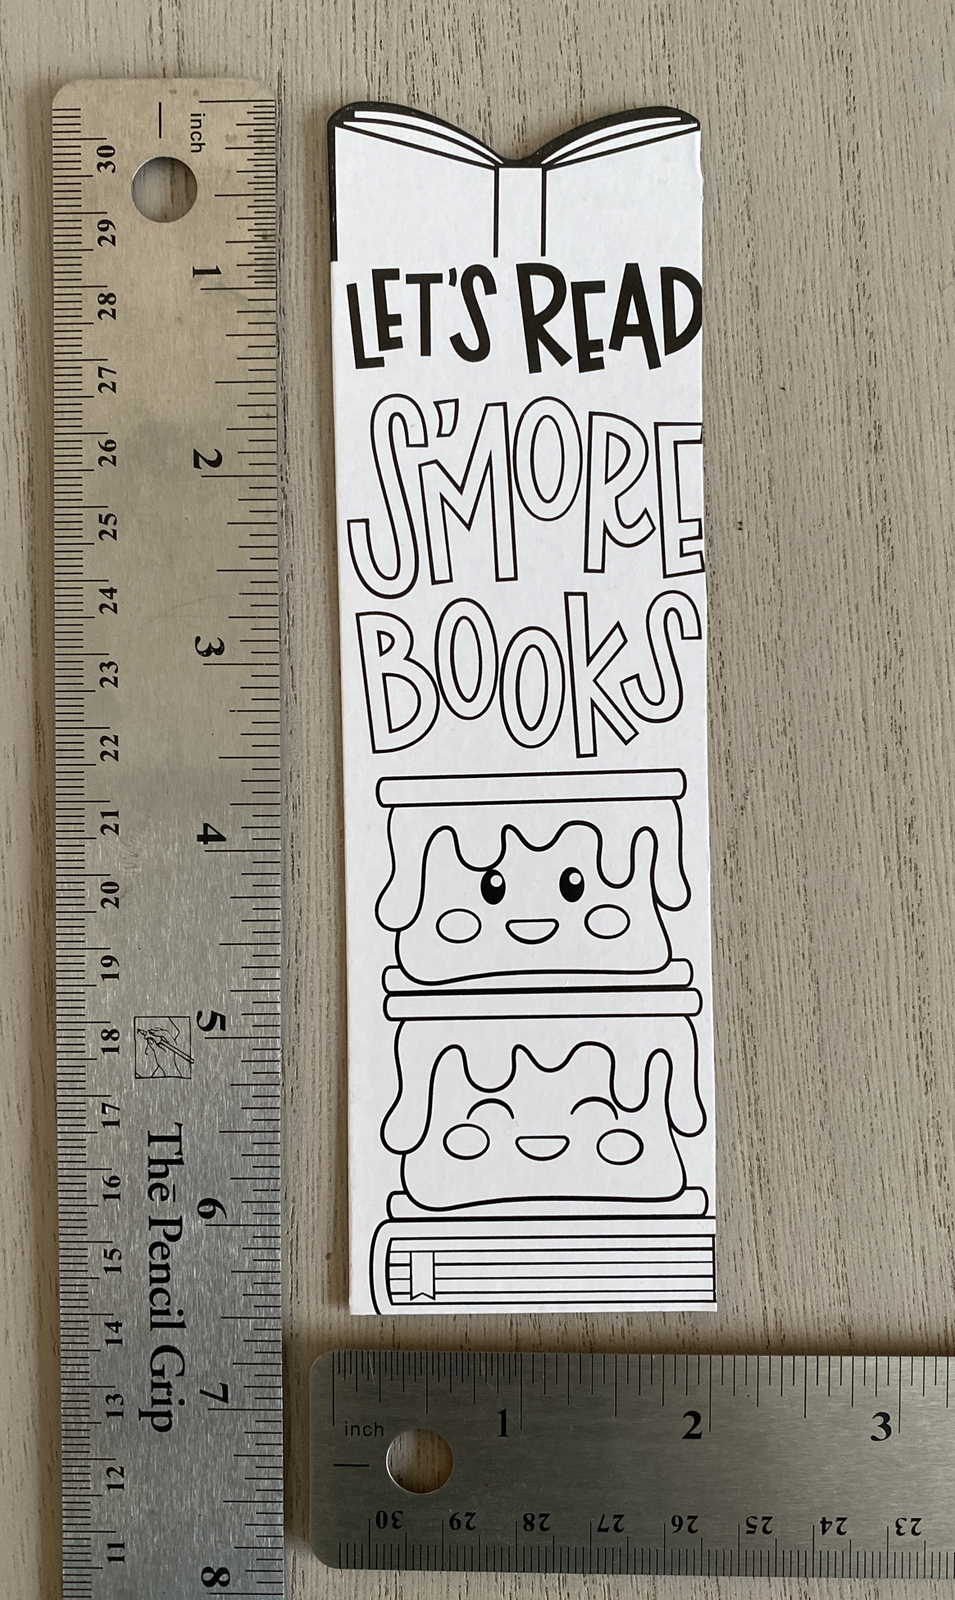 LET'S READ
S'MORE
BOOKS
inch
1
2
3
4
5
6
7
8
30
29
28
27
26
25
24
23
22
21
20
19
18
17
16
15
14
13
12
11
The Pencil Grip
inch
1
2
3
30
29
28
27
26
25
24
23